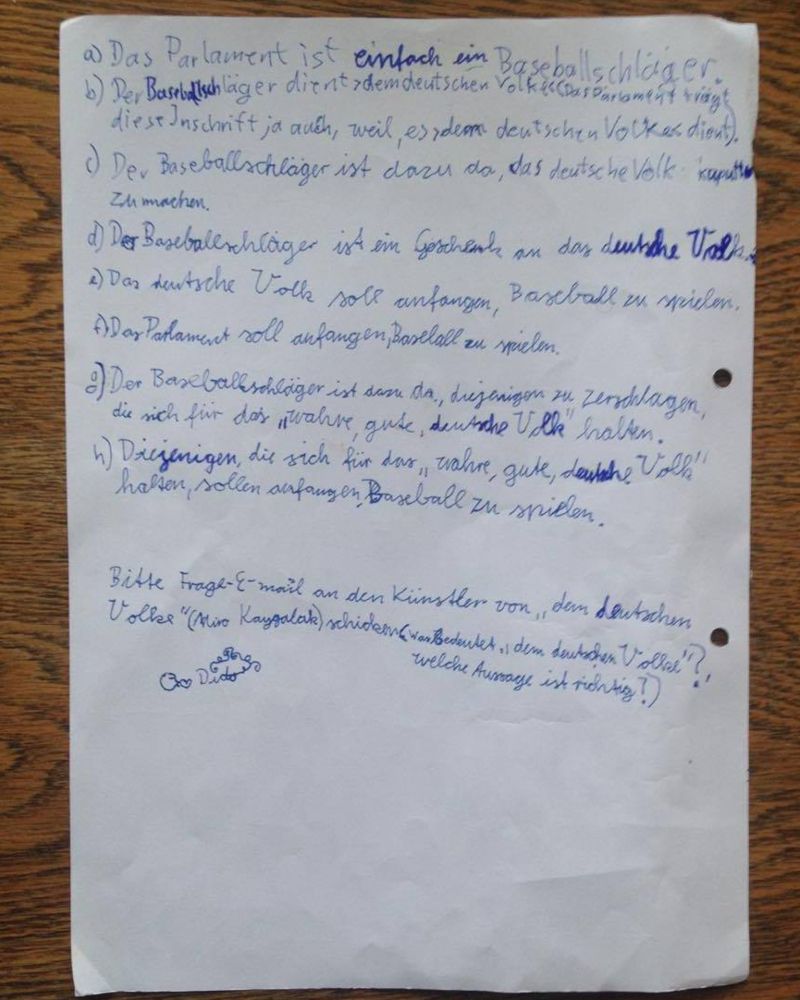 a) Das Parlament ist einfach ein Baseballschläger.
b) Der Baseballschläger dient >dem deutschen Volke< (Das Parlament trägt
diese Inschrift ja auch, weil, es >dem deutschen Volke< dient).
c) Der Baseballschläger ist dazu da, das deutsche Volk kaputt
zu machen.
d) Der Baseballschläger ist ein Geschenk an das deutsche Volk.
e) Das deutsche Volk soll anfangen, Baseball zu spielen.
f) Das Parlament soll anfangen, Baseball zu spielen.
g) Der Baseballschläger ist dazu da, diejenigen zu zerschlagen,
die sich für das „wahre, gute, deutsche Volk" halten.
h) Diejenigen, die sich für das „wahre, gute, deutsche Volk"
halten, sollen anfangen, Baseball zu spielen.
Bitte Frage-E-mail an den Künstler von „dem deutschen
Volke" (Miro Kaygalak) schicken (Was Bedeutet „dem deutschen Volke"?,
welche Aussage ist richtig?)
Dido